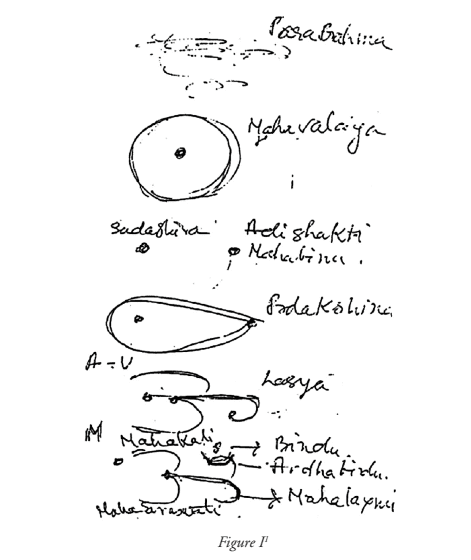 ParaBrahma
Mahavalaiya
Sadashiva Adishakti
Mahabindu.
Pradakshina
A - U
Lasya
M
Mahakali Bindu.
Ardhabindu.
Mahalaxmi
Mahasaraswati
Figure I¹